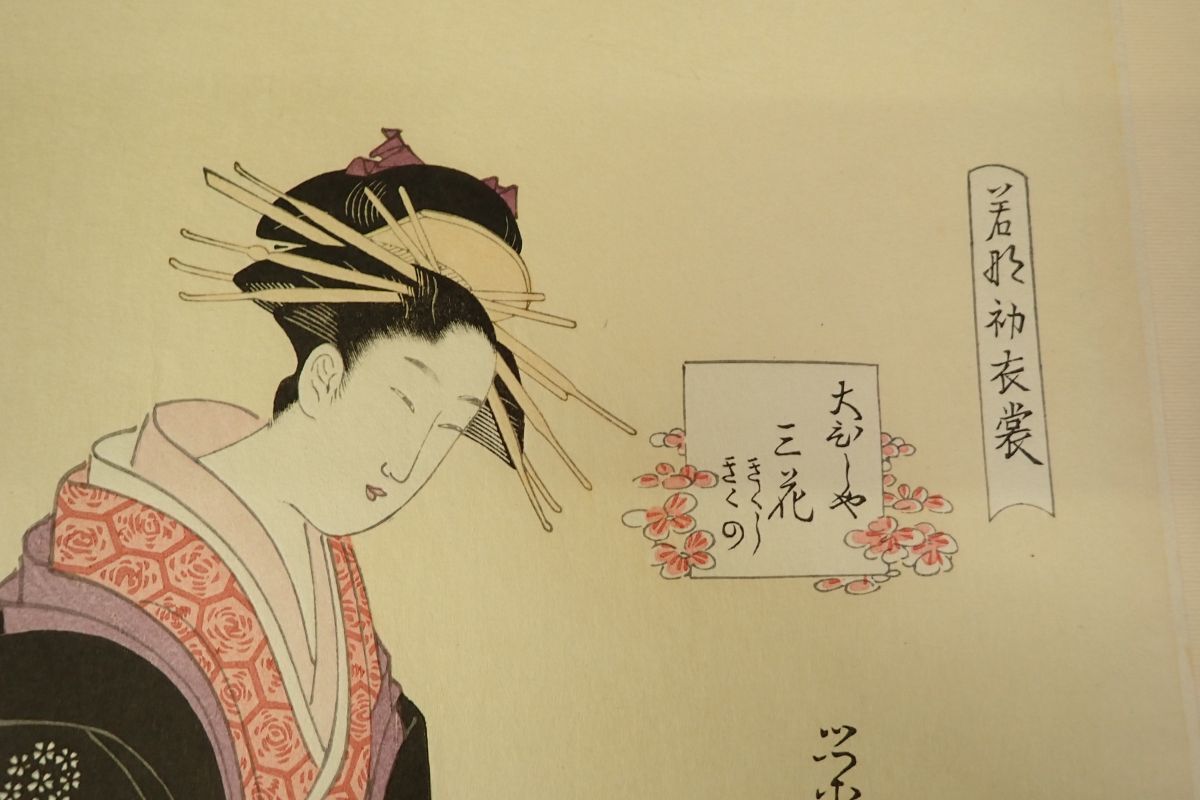 若那初衣裳
大ひしや
三花
きくし
きくの
栄